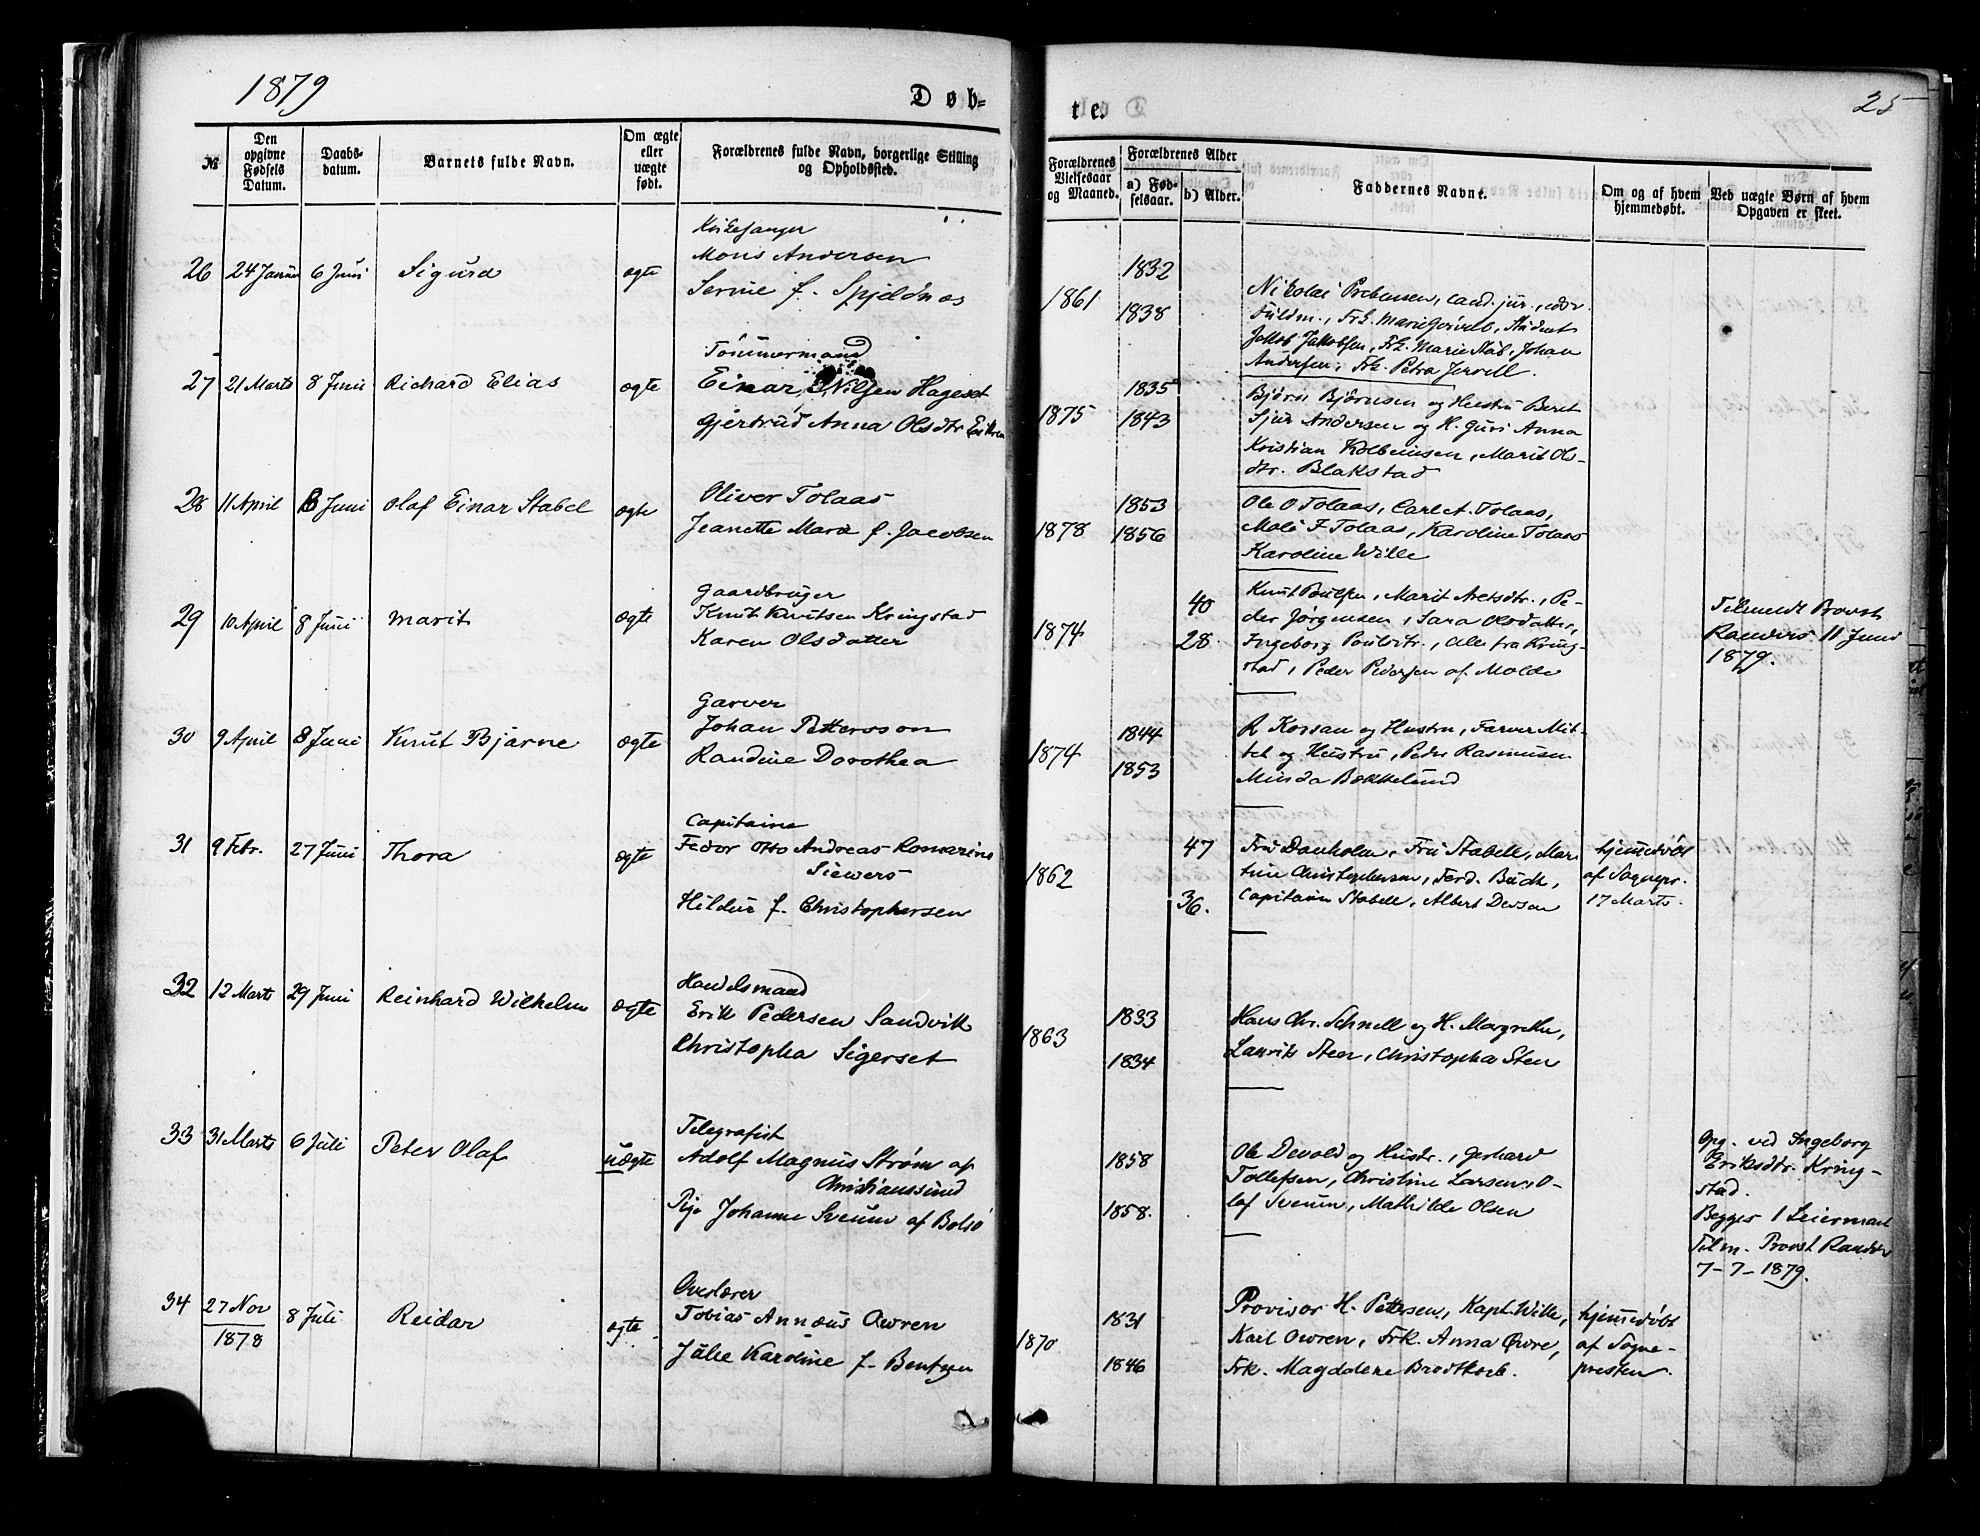 1879
Døb-
№
Den opgivne Fødsels Datum.
Daabs-datum.
Barnets fulde Navn.
Om ægte eller uægte født.
Forældrenes fulde Navn, borgerlige Stilling og Opholdssted.
26 24 Januar 6 Juni Sigurd ægte
Kirkesanger
Mons Andersen
Serine f. Spjeldnæs
27 21 Marts 8 Juni Richard Elias ægte
Tømmermand
Einar Nilsen Hageset
Gjertrud Anna Olsdtr
28 11 April 8 Juni Olaf Einar Stabel ægte
Oliver Tolaas
Jeanette Maria f. Jacobsen
29 10 April 8 Juni Marit ægte
Gaardbruger
Knut Knutsen Kringstad
Karen Olsdatter
30 9 April 8 Juni Knut Bjarne ægte
Garver
Johan Pettersson
Randine Dorothea
31 9 Febr. 27 Juni Thora ægte
Capitaine
Fedor Otto Andreas Romarino
Siewers
Hildur f. Christophersen
32 12 Marts 29 Juni Reinhard Wilhelm ægte
Handelsmand
Erik Pedersen Sandvik
Christopha Sigerset
33 31 Marts 6 Juli Peter Olaf uægte
Telegrafist
Adolf Magnus Strøm af
Christianssund
Pige Johanne Sveum af Bolsø
34 27 Nov 1878 8 Juli Reidar ægte
Overlærer
Tobias Annæus Owren
Julie Karoline f. Bentzen
te.
25
Forældrenes Vielsesaar og Maaned.
Forældrenes Alder
a) Fødselsaar.
b) Alder.
Faddernes Navne.
Om og af hvem hjemmedøbt.
Ved uægte Børn af hvem Opgaven er skeet.
1861 1832 1838
Nikolai Prebensen, cand. jur.,
Fuldm., Frk. Marie, Student
Jakob Jakobsen, Frk. Marie Stub, Johan
Andersen, Frk. Petra Jervell.
1875 1835 1843
Bjørn Bjørnsen og Hustru Beret
Sjur Andersen og H. Guri Anna
Kristian Kolbeinsen, Marit Ols-
dtr. Blakstad
1878 1853 1856
Ole O Tolaas, Carl A. Tolaas,
Mali F Tolaas, Karoline Tolaas
Karoline Wille
1874 40 28
Knut Poulsen, Marit Aretsdtr., Pe-
der Jørgensen, Sara Olsdatter,
Ingeborg Poulsdtr., Alle fra Kring-
stad, Peder Pedersen af Molde
Tilmeldt Provst
Randers 11 Juni
1879.
1874 1844 1853
R Korsan og Hustru, Farver Mit-
tet og Hustru, Peder Rasmussen
Minda Bækkelund
1862 47 36.
Fru Danholm, Fru Stabell, Mar-
tine Christophersen, Ferd. Buch,
Capitaine Stabell, Albert Dessen
hjemmedøbt
af Sognepr.
17 Marts.
1863 1833 1834
Hans Chr. Schnell og H. Margrethe,
Laurits Steen, Christopha Sten
1858 1858.
Ole Devold og Hustr., Gerhard
Tollefsen, Christine Larsen, O-
laf Sveum, Mathilde Olsen
Opg. ved Ingeborg
Eriksdtr. Kring-
stad.
Begges 1 Leiermaal
Tilm. Provst Randers
7-7-1879.
1870 1831 1846
Provisor H. Pettersen, Kapt. Wille,
Karl Owren, Frk. Anna Øvre,
Frk. Magdalene Brodtkorb.
hjemmedøbt
af Sogne-
presten.